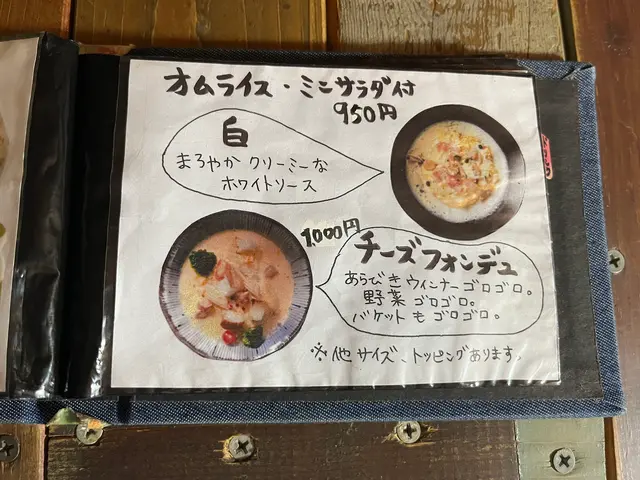 オムライス・ミニサラダ付
950円
白
まろやか クリーミーな
ホワイトソース
1,000円
チーズフォンデュ
あらびきウィンナーゴロゴロ。
野菜 ゴロゴロ。
バケットも ゴロゴロ。
※他サイズ、トッピングあります。